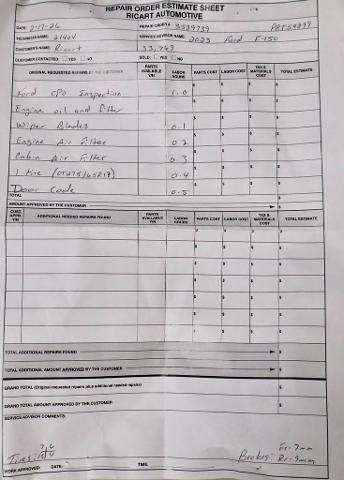 REPAIR ORDER ESTIMATE SHEET
RICART AUTOMOTIVE
DATE: 2-17-26 REPAIR ORDER#
TECHNICIAN NAME: SERVICE ADVISOR NAME: 2023 Ford F-150
CUSTOMER'S NAME: Ricart 33,749
CUSTOMER CONTACTED: YES NO SOLD: YES NO
ORIGINAL REQUESTED REPAIRS BY THE CUSTOMER PARTS AVAILABLE Y/N LABOR HOURS PARTS COST LABOR COST TAX & MATERIALS COST TOTAL ESTIMATE
Ford CPO Inspection 1.0
Engine oil and filter
Wiper Blades 0.1
Engine Air Filter 0.2
Cabin Air Filter 0.3
1 tire (LT275/65R18) 0.4
Door Code 0.5
TOTAL
AMOUNT APPROVED BY THE CUSTOMER $
CUST. APPR. Y/N ADDITIONAL NEEDED REPAIRS FOUND PARTS AVAILABLE Y/N LABOR HOURS PARTS COST LABOR COST TAX & MATERIALS COST TOTAL ESTIMATE
TOTAL ADDITIONAL REPAIRS FOUND $
TOTAL ADDITIONAL AMOUNT APPROVED BY THE CUSTOMER $
GRAND TOTAL (Original requested repairs plus additional needed repairs) $
GRAND TOTAL AMOUNT APPROVED BY THE CUSTOMER $
SERVICE ADVISOR COMMENTS:
Tires: Brakes: Fr-7mm
Rr-9mm
WORK APPROVED: DATE: TIME: